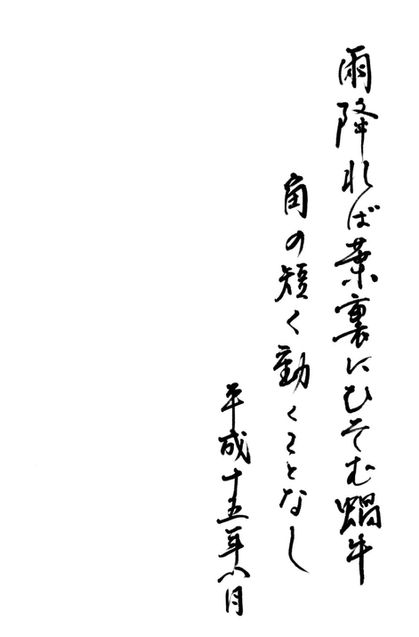 雨降れば葉裏にひそむ蝸牛
角の短く動くことなし
平成十五年八月